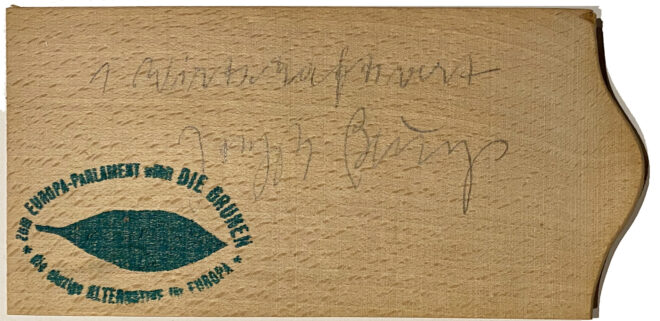 1 Wirtschaftswert
Joseph Beuys
zum EUROPA-PARLAMENT wählt DIE GRÜNEN
* die einzige ALTERNATIVE für EUROPA *